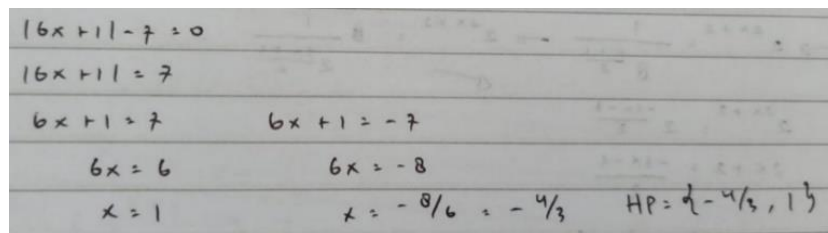 |6x + 1| - 7 = 0
|6x + 1| = 7
6x + 1 = 7 6x + 1 = -7
6x = 6 6x = -8
x = 1 x = -8/6 = -4/3 HP = {-4/3, 1}